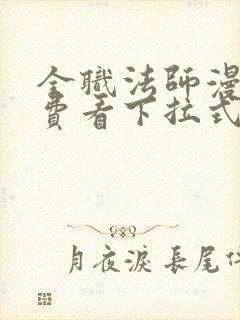 全職法師漫
費看下拉式
月夜淚 長尾